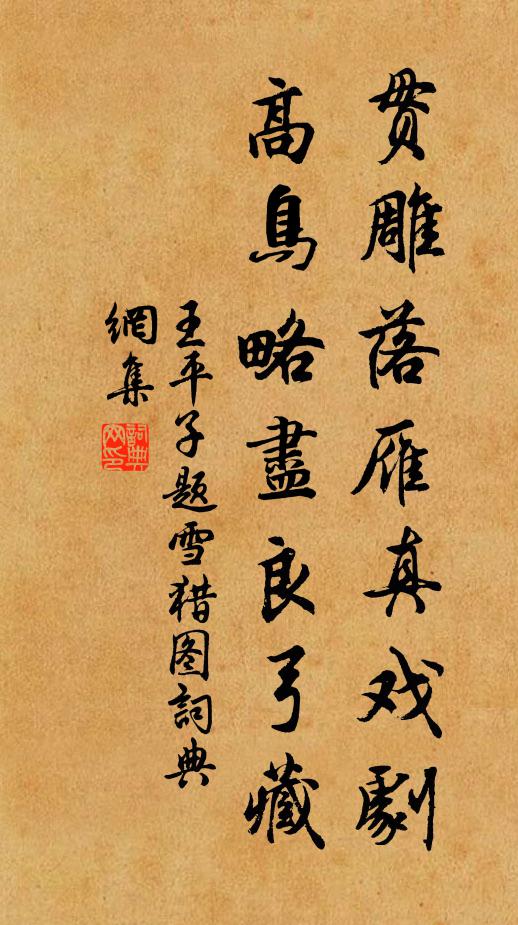 贯雕落雁真戏劇
高鳥略盡良弓藏
王平子题雪猎图詞典
網集
詞典网印